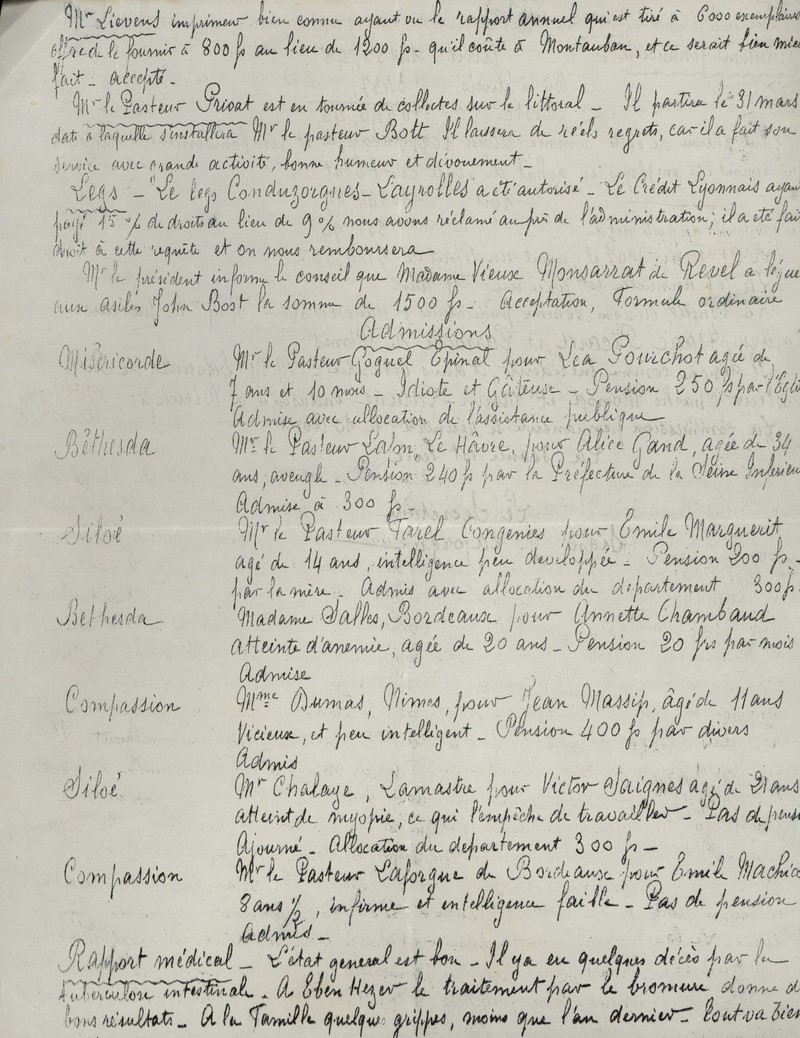 Mr Lievens imprimeur bien connu ayant vu le rapport annuel qui est tiré à 6000 exemplaires
offre de le fournir à 800 fs au lieu de 1200 fs - qu'il coûte à Montauban, et ce serait bien mieu
fait - accepté -
Mr le Pasteur Privat est en tournée de collectes sur le littoral - Il partira le 31 mars
date à laquelle s'installera Mr le pasteur Bott Il laissera de réels regrets, car il a fait son
service avec grande activité, bonne humeur et dévouement -
Legs - Le legs Conduzorgues-Layrolles a été autorisé - Le Crédit Lyonnais ayant
payé 15 % de droits au lieu de 9 % nous avons réclamé auprès de l'administration; il a été fait
droit à cette requête et on nous remboursera
Mr le président informe le conseil que Madame Vieux Monsarrat de Revel a légué
aux asiles John Bost la somme de 1500 fs - Acceptation, Formule ordinaire
Admissions
Miséricorde Mr le Pasteur Goguel Epinal pour Lea Pourchot agée de
7 ans et 10 mois - Idiote et Gâteuse - Pension 250 fs par l'Egli
Admise avec allocation de l'assistance publique
Béthesda Mr le Pasteur Lafon, Le Hâvre, pour Alice Gand, agée de 34
ans, aveugle - Pension 240 fs par la Préfecture de la Seine Inférieu
Admise à 300 fs -
Siloé Mr le Pasteur Farel Congenies pour Emile Marguerit
agé de 14 ans, intelligence peu developpée - Pension 200 fs -
par la mère - Admis avec allocation du departement 300 fs
Bethesda Madame Salles, Bordeaux pour Annette Chambaud
atteinte d'anemie, agée de 20 ans - Pension 20 frs par mois
Admise
Compassion Mme Dumas, Nimes, pour Jean Massip, âgé de 11 ans
Vicieux, et peu intelligent - Pension 400 fs par divers
Admis
Siloé Mr Chalaye, Lamastre pour Victor Saignes agé de 21 ans
atteint de myopie, ce qui l'empêche de travailler - Pas de pensi
Ajourné - Allocation du departement 300 fs -
Compassion Mr le Pasteur Laforgue de Bordeaux pour Emile Machic
8 ans 1/2, infirme et intelligence faible - Pas de pension
Admis -
Rapport médical - L'état general est bon - Il y a eu quelques décès par la
tuberculose intestinale - A Eben Hezer le traitement par le bromure donne d
bons résultats - A la Famille quelques grippes, moins que l'an dernier - Tout va bien